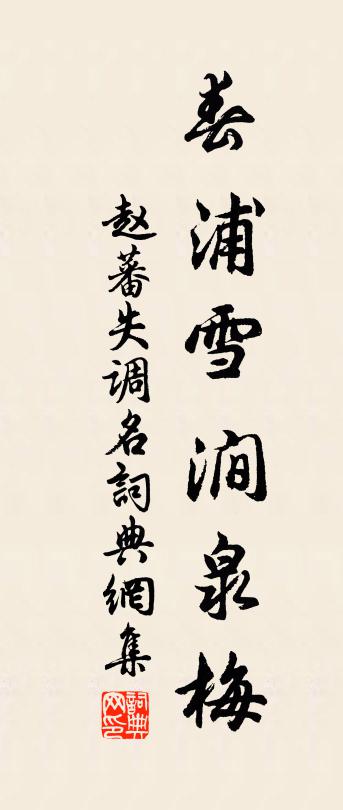 春浦雪澗泉梅
赵蕃失調名詞典網集
詞典网印